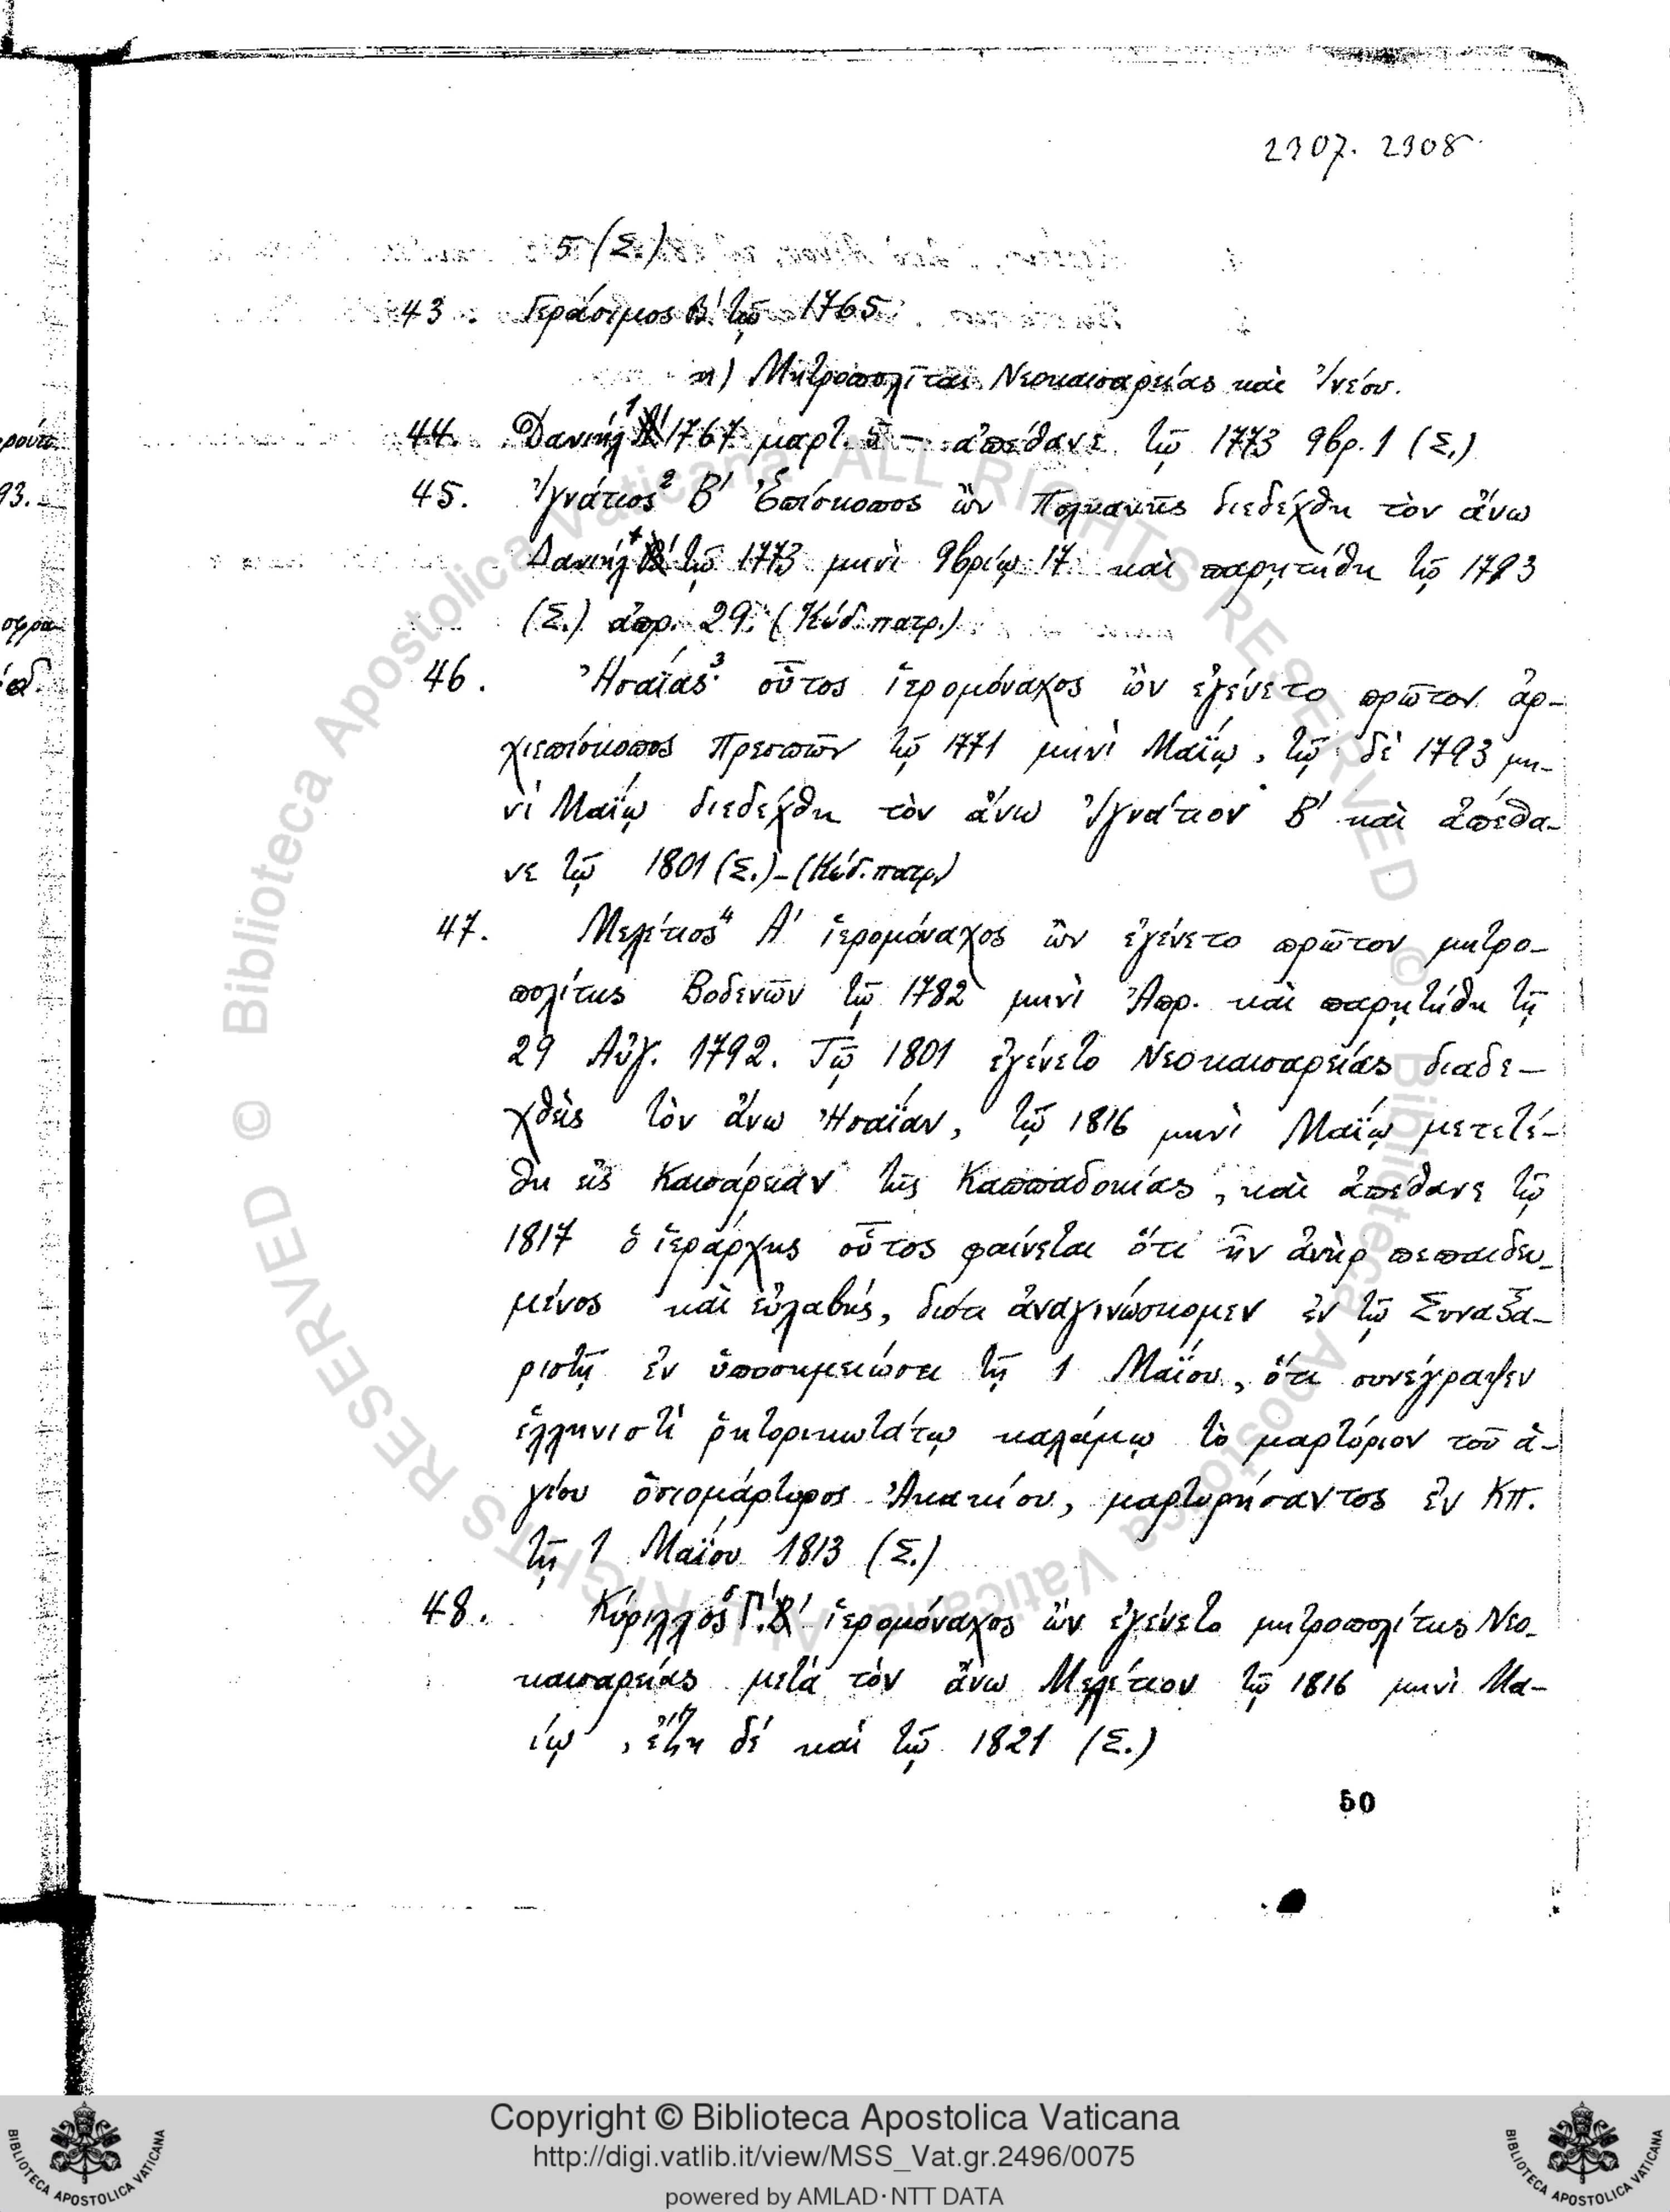 2307. 2308
5 (Σ.)
43. Γεράσιμος Β' τῷ 1765
η) Μητροπολῖται Νεοκαισαρείας καὶ Ἰνέου.
44. Δανιήλ 1 1767 μαρτ. 5 – ἀπέθανε τῷ 1773 9βρ. 1 (Σ.)
45. Ἰγνάτιος 2 Β' Ἐπίσκοπος ὢν Πολυανῆς διεδέχθη τὸν ἄνω
Δανιήλ τῷ 1773 μηνὶ 9βρίῳ 17 καὶ παρῃτήθη τῷ 1793
(Σ.) ἀπρ. 29. (Κώδ. πατρ.)
46. Ἡσαΐας 3 οὗτος ἱερομόναχος ὢν ἐγένετο πρῶτον ἀρ-
χιεπίσκοπος Πρεσπῶν τῷ 1771 μηνὶ Μαΐῳ, τῷ δὲ 1793 μη-
νὶ Μαΐῳ διεδέχθη τὸν ἄνω Ἰγνάτιον Β' καὶ ἀπέθα-
νε τῷ 1801 (Σ.) – (Κώδ. πατρ.)
47. Μελέτιος 4 Α' ἱερομόναχος ὢν ἐγένετο πρῶτον μητρο-
πολίτης Βοδενῶν τῷ 1782 μηνὶ Ἀπρ. καὶ παρῃτήθη τῇ
29 Αὐγ. 1792. Τῷ 1801 ἐγένετο Νεοκαισαρείας διαδε-
χθεὶς τὸν ἄνω Ἡσαΐαν, τῷ 1816 μηνὶ Μαΐῳ μετετέ-
θη εἰς Καισάρειαν τῆς Καππαδοκίας, καὶ ἀπέθανε τῷ
1817 ὁ ἱεράρχης οὗτος φαίνεται ὅτι ἦν ἀνὴρ πεπαιδευ-
μένος καὶ εὐλαβής, διότι ἀναγινώσκομεν ἐν τῷ Συναξα-
ριστῇ ἐν ὑποσημειώσει τῇ 1 Μαΐου, ὅτι συνέγραψεν
ἑλληνιστὶ ῥητορικωτάτῳ καλάμῳ τὸ μαρτύριον τοῦ ἁ-
γίου ὁσιομάρτυρος Ἀκακίου, μαρτυρήσαντος ἐν ΚΠ.
τῇ 1 Μαΐου 1813 (Σ.)
48. Κύριλλος Γ'. ἱερομόναχος ὢν ἐγένετο μητροπολίτης Νεο-
καισαρείας μετὰ τὸν ἄνω Μελέτιον τῷ 1816 μηνὶ Μα-
ΐῳ, ἔζη δὲ καὶ τῷ 1821 (Σ.)
50
Copyright © Biblioteca Apostolica Vaticana
http://digi.vatlib.it/view/MSS_Vat.gr.2496/0075
powered by AMLAD·NTT DATA